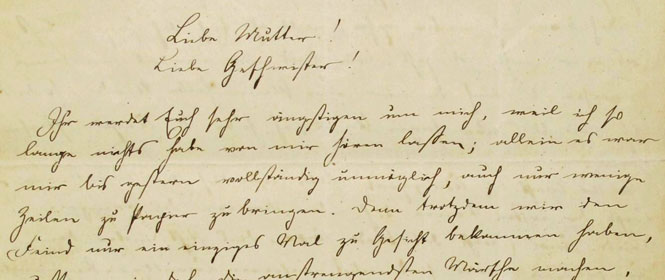 Liebe Mutter!
Liebe Geschwister!
Ihr werdet Euch sehr ängstigen um mich, weil ich so
lange nichts habe von mir hören lassen; allein es war
mir bis gestern vollständig unmöglich, auch nur wenige
Zeilen zu Papier zu bringen. Denn trotzdem wir den
Feind nur ein einziges Mal zu Gesicht bekommen haben,
doch die anstrengendsten Märsche machen,